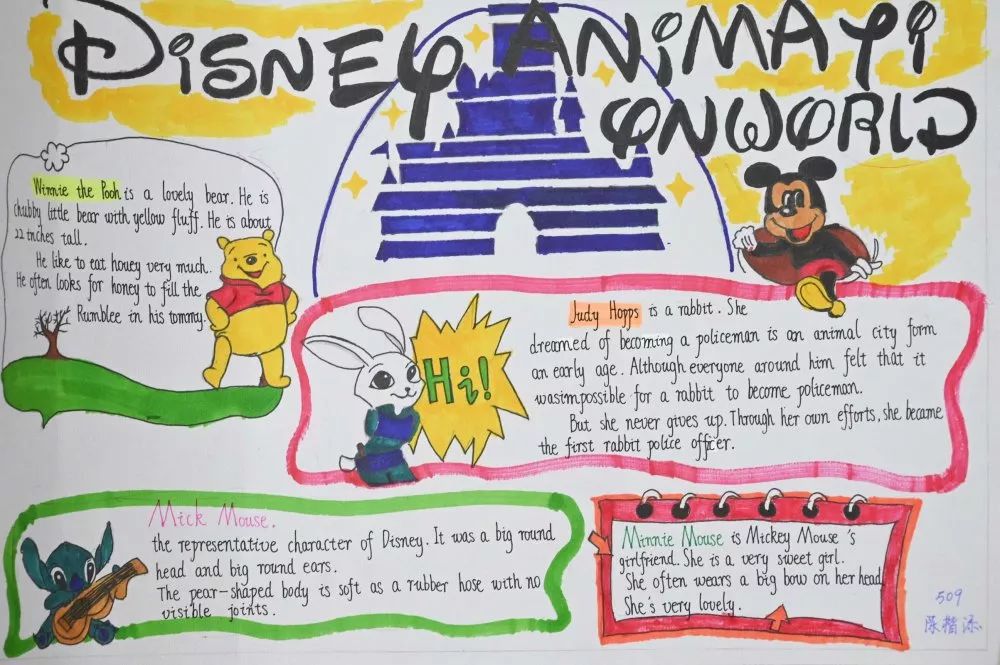 DISNEY ANIMATI
ONWORLD
Winnie the Pooh is a lovely bear. He is
chubby little bear with yellow fluff. He is about
22 inches tall.
He like to eat honey very much.
He often looks for honey to fill the
Rumblee in his tommy.
Judy Hopps is a rabit. She
dreamed of becoming a policeman is an animal city form
an early age. Although everyone around him felt that it
wasimpossible for a rabbit to become policeman.
But she never gives up. Through her own efforts, she became
the first rabbit police officer.
Hi!
Mick Mouse.
the representative character of Disney. It was a big round
head and big round ears.
The pear-shaped body is soft as a rubber hose with no
visible joints.
Minnie Mouse is Mickey Mouse's
girlfriend. She is a very sweet girl.
She often wears a big bow on her head
She's very lovely.
509
陈楷添